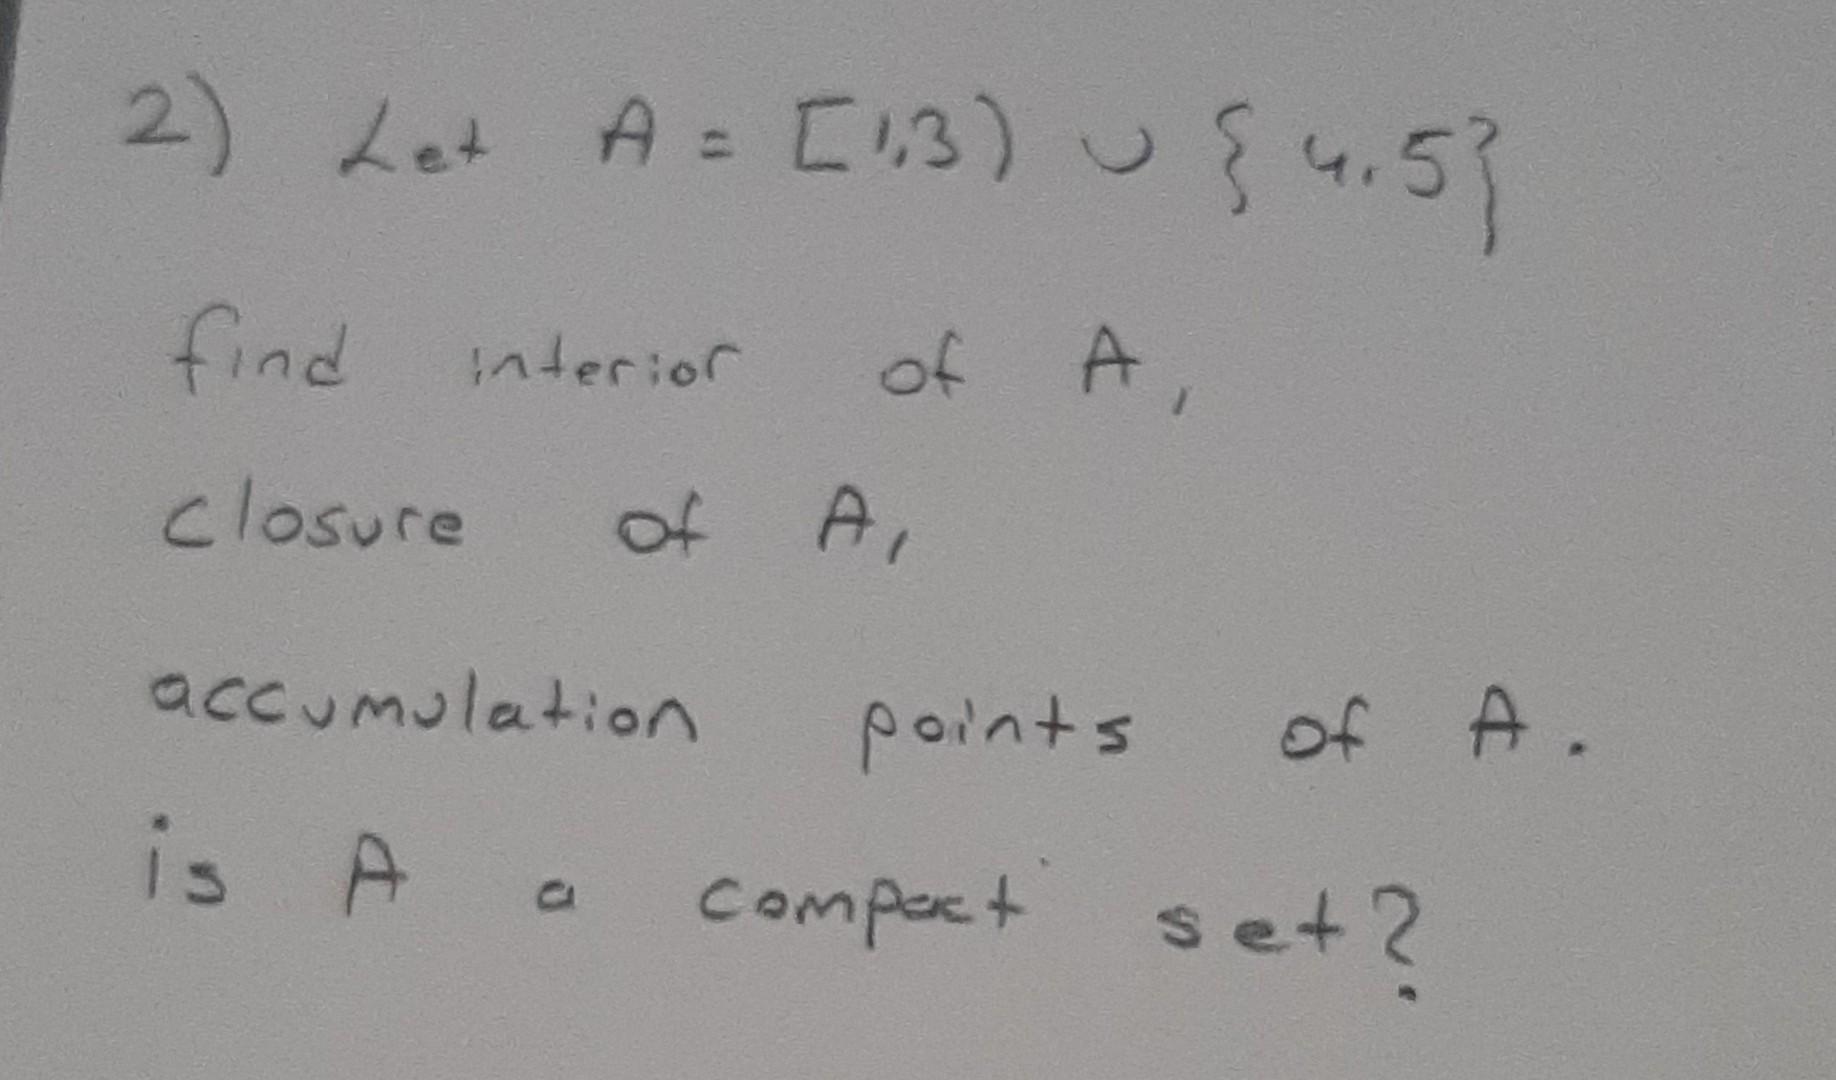 2) Let A = [1,3) ∪ {4,5}
find interior of A,
closure of A,
accumulation points of A.
is A a compact set?